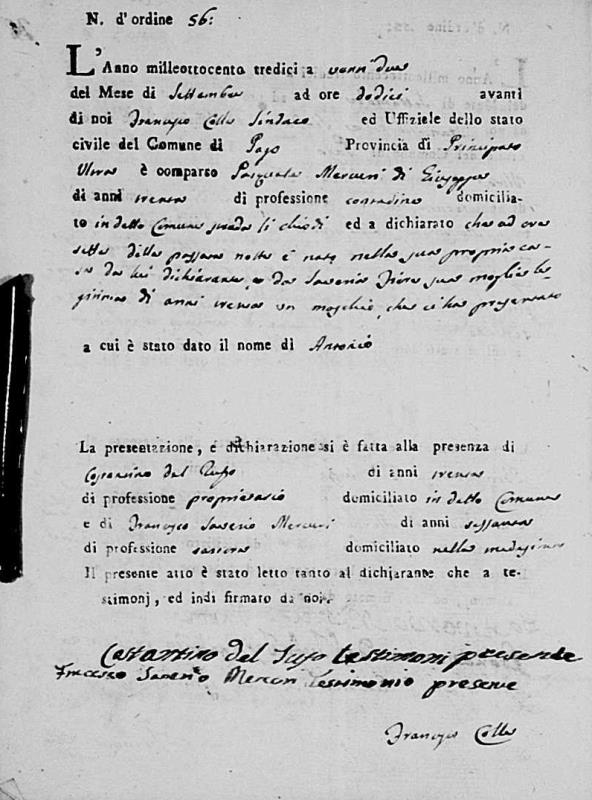 N. d'ordine 56:
L'Anno milleottocento tredici a venti due
del Mese di Settembre ad ore dodici avanti
di noi Francesco Colle Sindaco ed Uffiziale dello stato
civile del Comune di Pago Provincia di Principato
Ultra è comparso Pasquale Mercuri di Giuseppe
di anni trenta di professione contadino domicilia-
to in detto Comune strada li chiodi ed a dichiarato che ad ore
sette della passata notte è nato nella sua propria ca-
sa da lui dichiarante, e da Saveria sua moglie le
gitima di anni trenta un maschio, che ci ha presentato
a cui è stato dato il nome di Antonio
La presentazione, e dichiarazione si è fatta alla presenza di
Costantino del di anni trenta
di professione proprietario domiciliato in detto Comune
e di Francesco Saverio Mercuri di anni sessanta
di professione sartore domiciliato nella medesima
Il presente atto è stato letto tanto al dichiarante che a te-
stimonj, ed indi firmato da noi.
Costantino del testimoni presente
Francesco Saverio Mercuri testimonio presente
Francesco Colle